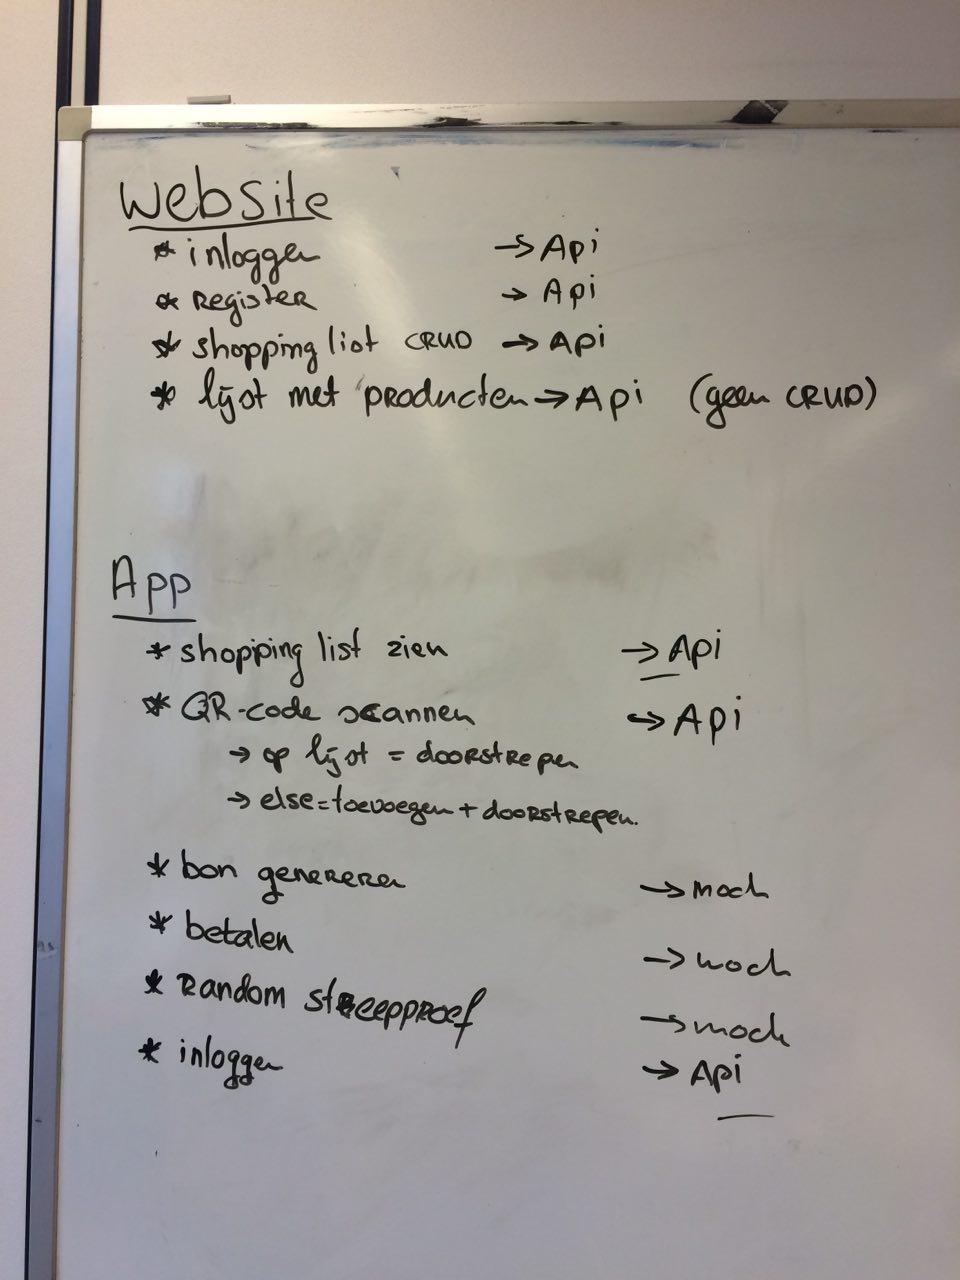 Website
* inloggen → Api
* Register → Api
* shopping list CRUD → Api
* lijst met producten → Api (geen CRUD)
App
* shopping list zien → Api
* QR-code scannen → Api
→ op lijst = doorstrepen
→ else = toevoegen + doorstrepen.
* bon genereren → mock
* betalen → mock
* Random steekproef → mock
* inloggen → Api